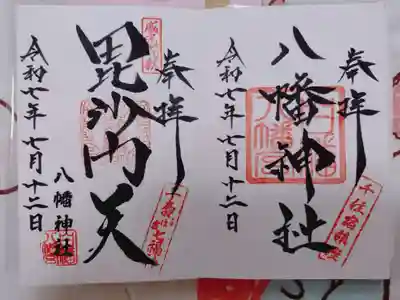 奉拝
八幡神社
千住宿鎮座
令和七年七月十二日
奉拝
毘沙門天
千寿七福
令和七年七月十二日
八幡神社